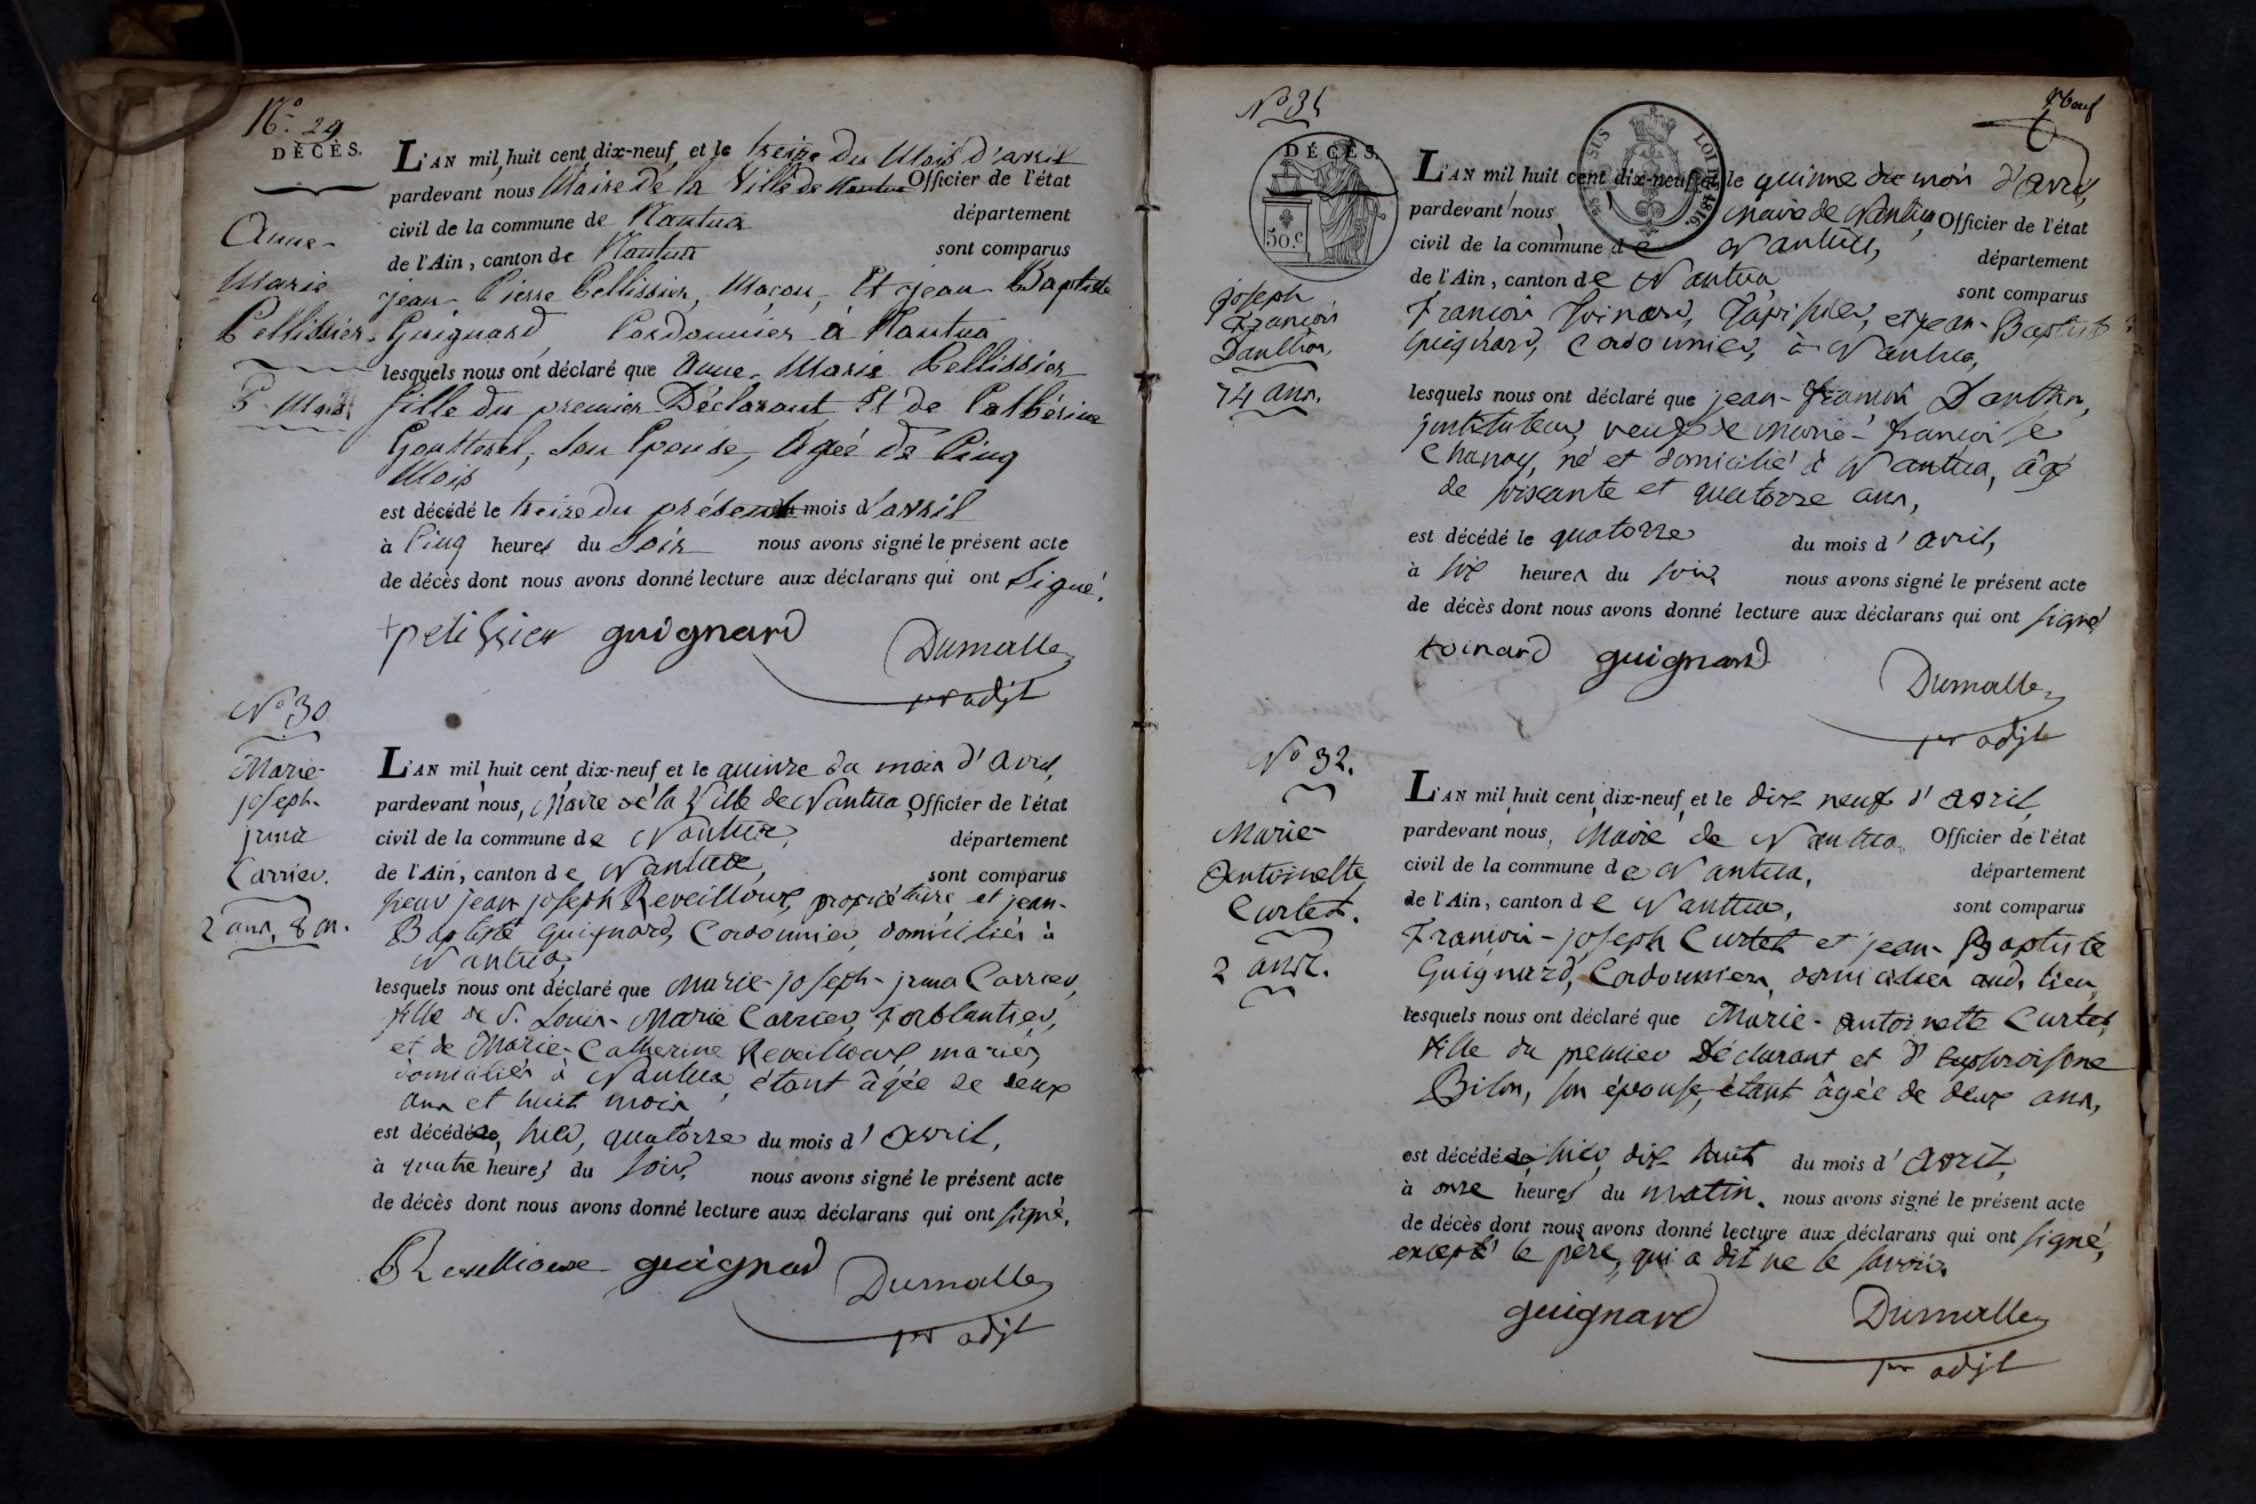 N° 29
DÉCÈS.
Anne-
Marie
Pellissier.
5 Mois
L'AN mil huit cent dix-neuf et le treize du Mois d'avril
pardevant nous Maire de la Ville de Nantua Officier de l'état
civil de la commune de Nantua département
de l'Ain, canton de Nantua sont comparus
jean-Pierre Pellissier, Maçon, Et jean-Baptiste
Guignard, Cordonnier à Nantua
lesquels nous ont déclaré que Anne-Marie Pellissier
fille du premier Déclarant Et de Cathérine
son Epouse, Agée de Cinq
Mois
est décédé le treize du présent mois d'avril
à Cinq heures du Soir nous avons signé le présent acte
de décès dont nous avons donné lecture aux déclarans qui ont Signé.
pelissier guignard Dumalle
1er adjt
N° 30
Marie-
joseph-
jrma
Carrier.
2 ans, 8 m.
L'AN mil huit cent dix-neuf et le quinze du mois d'avril,
pardevant nous, Maire de la Ville de Nantua Officier de l'état
civil de la commune de Nantua, département
de l'Ain, canton de Nantua, sont comparus
sieur jean joseph Reveilloux, propriétaire et jean-
Baptiste Guignard, Cordonnier, domiciliés à
Nantua,
lesquels nous ont déclaré que Marie-joseph-jrma Carrier,
fille de S. Louis-Marie Carrier, ferblantier,
et de Marie-Catherine Reveilloux, mariés,
domiciliés à Nantua, étant âgée de deux
ans et huit mois
est décédée, hier, quatorze du mois d'avril,
à quatre heures du soir, nous avons signé le présent acte
de décès dont nous avons donné lecture aux déclarans qui ont signé.
Reveilloux guignard Dumalle
1er adjt
N° 31
neuf
DÉCÈS.
50.c
LOI DE 1816.
joseph
François
Danthon,
74 ans.
L'AN mil huit cent dix-neuf et le quinze du mois d'avril,
pardevant nous, Maire de Nantua, Officier de l'état
civil de la commune de Nantua, département
de l'Ain, canton de Nantua, sont comparus
François Toinard, Tapissier, et jean-Baptiste
Guignard, Cordonnier, à Nantua,
lesquels nous ont déclaré que jean-François Danthon,
jnstituteur, veuf de Marie-françoise
Chanay, né et domicilié à Nantua, âgé
de soixante et quatorze ans,
est décédé le quatorze du mois d'avril,
à six heures du soir, nous avons signé le présent acte
de décès dont nous avons donné lecture aux déclarans qui ont signé
toinard guignard
Dumalle
1er adjt
N° 32.
Marie-
Antoinette
Curtet.
2 ans.
L'AN mil huit cent dix-neuf et le dix neuf d'avril,
pardevant nous, Maire de Nantua Officier de l'état
civil de la commune de Nantua, département
de l'Ain, canton de Nantua, sont comparus
François-joseph Curtet et jean-Baptiste
Guignard, Cordonniers, domiciliés aud. lieu,
lesquels nous ont déclaré que Marie-Antoinette Curtet,
fille du premier Déclarant et d'Euphroisine
Bilon, son épouse, étant âgée de deux ans,
est décédée, hier, dix huit du mois d'avril,
à onze heures du matin, nous avons signé le présent acte
de décès dont nous avons donné lecture aux déclarans qui ont signé,
excepté le père, qui a dit ne le savoir.
guignard Dumalle
1er adjt